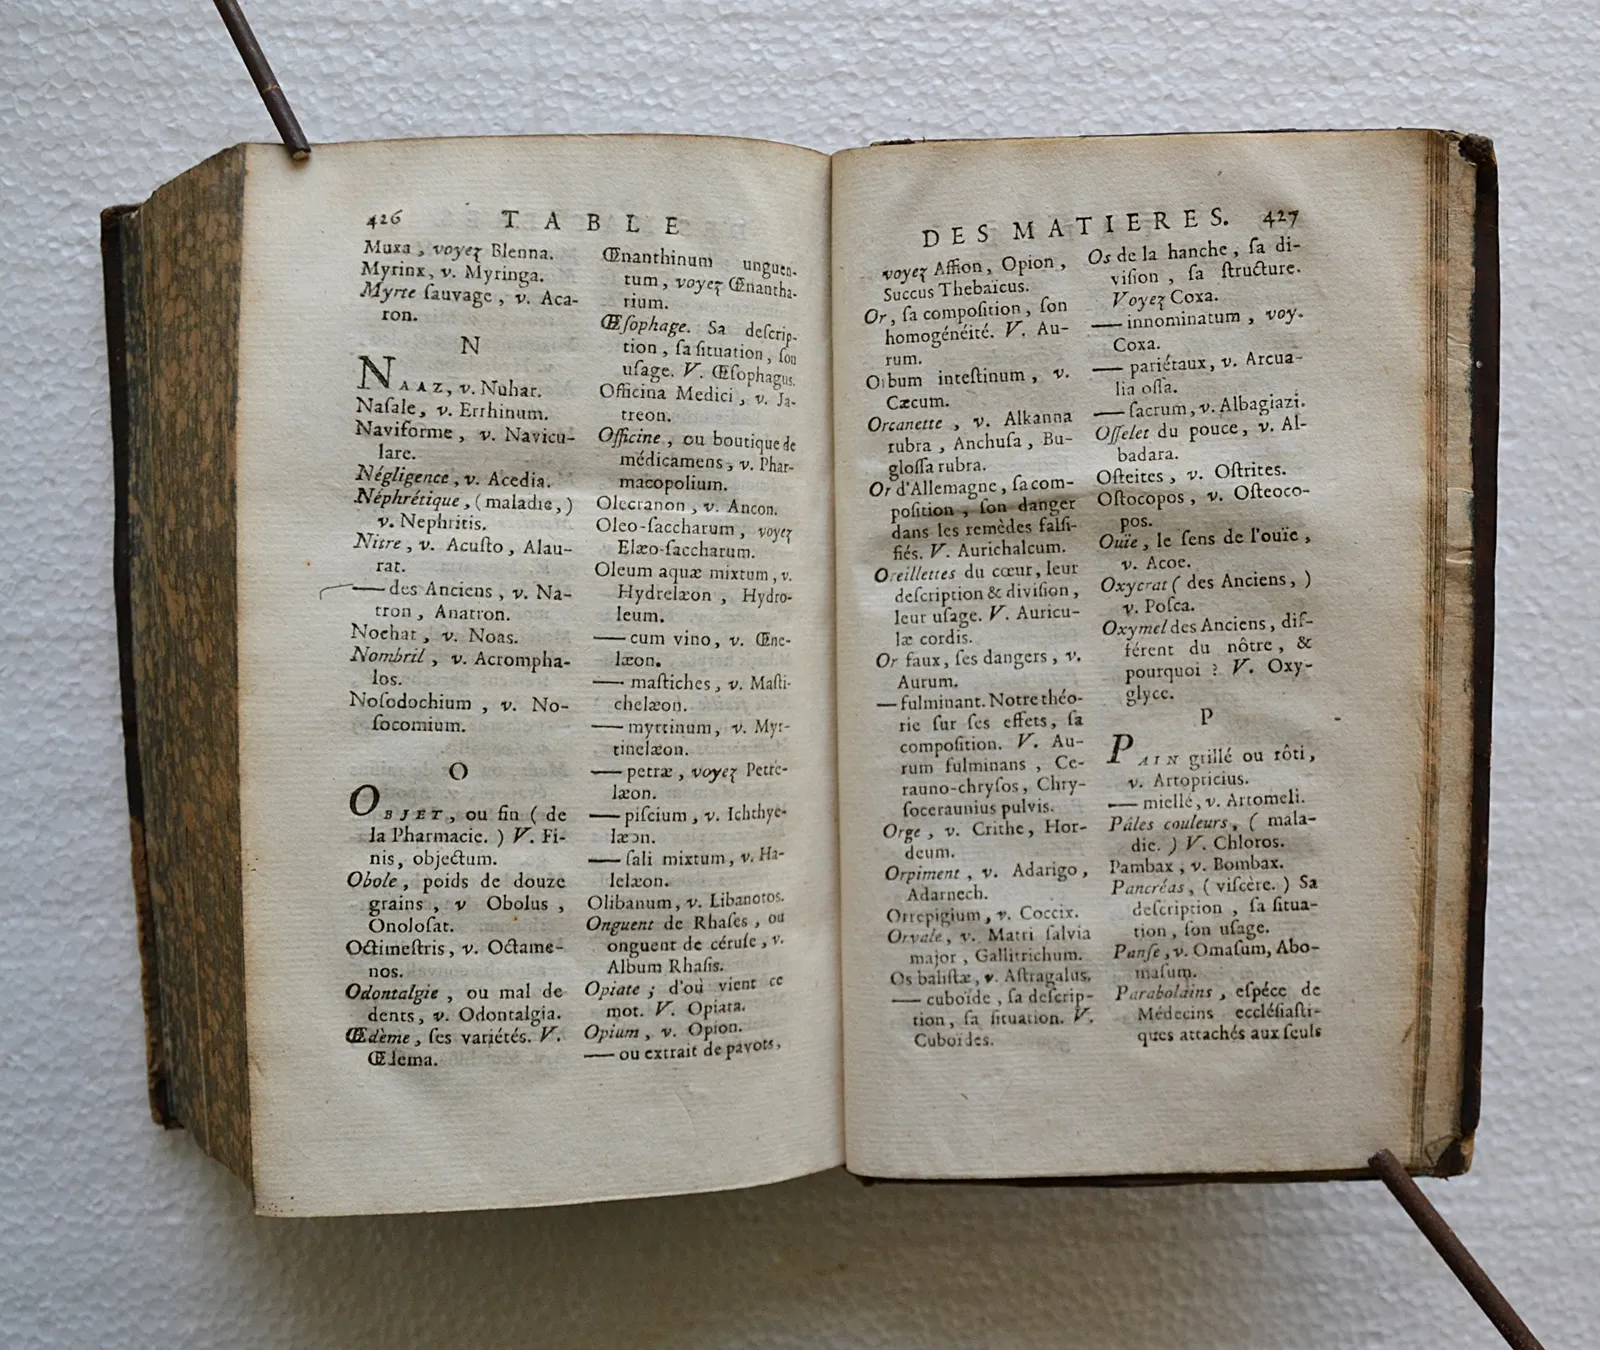 426 TABLE
Muxa, voyez Blenna.
Myrinx, v. Myringa.
Myrte ſauvage, v. Aca-
ron.
N
NAAZ, v. Nuhar.
Naſale, v. Errhinum.
Naviforme, v. Navicu-
lare.
Négligence, v. Acedia.
Néphrétique, (maladie,)
v. Nephritis.
Nitre, v. Acuſto, Alau-
rat.
— des Anciens, v. Na-
tron, Anatron.
Nochat, v. Noas.
Nombril, v. Acrompha-
los.
Noſodochium, v. No-
ſocomium.
O
OBJET, ou fin (de
la Pharmacie.) V. Fi-
nis, objectum.
Obole, poids de douze
grains, v Obolus,
Onoloſat.
Octimeſtris, v. Octame-
nos.
Odontalgie, ou mal de
dents, v. Odontalgia.
Œdème, ſes variétés. V.
Œdema.
Œnanthinum unguen-
tum, voyez Œnantha-
rium.
Œſophage. Sa deſcrip-
tion, ſa ſituation, ſon
uſage. V. Œſophagus.
Officina Medici, v. Ja-
treon.
Officine, ou boutique de
médicamens, v. Phar-
macopolium.
Olecranon, v. Ancon.
Oleo-ſaccharum, voyez
Elæo-ſaccharum.
Oleum aquæ mixtum, v.
Hydrelæon, Hydro-
leum.
— cum vino, v. Œne-
læon.
— maſtiches, v. Maſti-
chelæon.
— myrtinum, v. Myr-
tinelæon.
— petræ, voyez Petre-
læon.
— piſcium, v. Ichthye-
læon.
— ſali mixtum, v. Ha-
lelæon.
Olibanum, v. Libanotos.
Onguent de Rhaſes, ou
onguent de céruſe, v.
Album Rhaſis.
Opiate; d'où vient ce
mot. V. Opiata.
Opium, v. Opion.
— ou extrait de pavots,
DES MATIERES. 427
voyez Affion, Opion,
Succus Thebaïcus.
Or, ſa compoſition, ſon
homogénéité. V. Au-
rum.
Orbum inteſtinum, v.
Cæcum.
Orcanette, v. Alkanna
rubra, Anchuſa, Bu-
gloſſa rubra.
Or d'Allemagne, ſa com-
poſition, ſon danger
dans les remèdes falſi-
fiés. V. Aurichalcum.
Oreillettes du cœur, leur
deſcription & diviſion,
leur uſage. V. Auricu-
læ cordis.
Or faux, ſes dangers, v.
Aurum.
— fulminant. Notre théo-
rie ſur ſes effets, ſa
compoſition. V. Au-
rum fulminans, Ce-
rauno-chryſos, Chry-
ſoceraunius pulvis.
Orge, v. Crithe, Hor-
deum.
Orpiment, v. Adarigo,
Adarnech.
Orrepigium, v. Coccix.
Orvale, v. Matri ſalvia
major, Gallitrichum.
Os baliſtæ, v. Aſtragalus.
— cuboïde, ſa deſcrip-
tion, ſa ſituation. V.
Cuboïdes.
Os de la hanche, ſa di-
viſion, ſa ſtructure.
Voyez Coxa.
— innominatum, voy.
Coxa.
— pariétaux, v. Arcua-
lia oſſa.
— ſacrum, v. Albagiazi.
Oſſelet du pouce, v. Al-
badara.
Oſteites, v. Oſtrites.
Oſtocopos, v. Oſteoco-
pos.
Ouïe, le ſens de l'ouïe,
v. Acoe.
Oxycrat (des Anciens,)
v. Poſca.
Oxymel des Anciens, dif-
férent du nôtre, &
pourquoi? V. Oxy-
glyce.
P
PAIN grillé ou rôti,
v. Artopticius.
— miellé, v. Artomeli.
Pâles couleurs, (mala-
die.) V. Chloros.
Pambax, v. Bombax.
Pancréas, (viſcère.) Sa
deſcription, ſa ſitua-
tion, ſon uſage.
Panſe, v. Omaſum, Abo-
maſum.
Parabolains, eſpéce de
Médecins eccléſiaſti-
ques attachés aux ſeuls